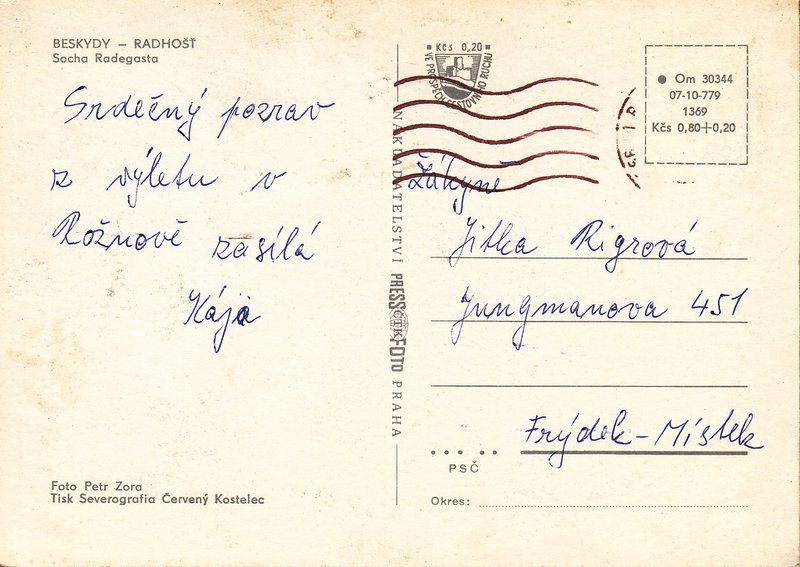 BESKYDY – RADHOŠŤ
Socha Radegasta
Srdečný pozrav
z výletu v
Rožnově zasílá
Kája
Foto Petr Zora
Tisk Severografia Červený Kostelec
Kčs 0,20
VE PROSPĚCH CESTOVNÍHO RUCHU
NAKLADATELSTVÍ PRESSFOTO PRAHA
ČTK
Om 30344
07-10-779
1369
Kčs 0,80+0,20
Žákyně
Jitka Rigrová
Jungmanova 451
Frýdek-Místek
PSČ
Okres: